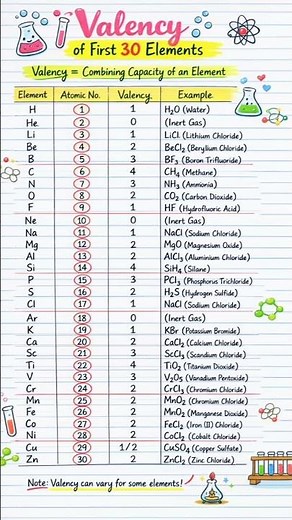 Valency
of First 30 Elements
Valency = Combining Capacity of an Element
Element Atomic No. Valency. Example
H 1 1 H₂O (Water)
He 2 0 (Inert Gas)
Li 3 1 LiCl (Lithium Chloride)
Be 4 2 BeCl₂ (Berylium Chloride)
B 5 3 BF₃ (Boron Trifluoride)
C 6 4 CH₄ (Methane)
N 7 3 NH₃ (Ammonia)
O 8 2 CO₂ (Carbon Dioxide)
F 9 1 HF (Hydrofluoric Acid)
Ne 10 0 (Inert Gas)
Na 11 1 NaCl (Sodium Chloride)
Mg 12 2 MgO (Magnesium Oxide)
Al 13 2 AlCl₃ (Aluminium Chloride)
Si 14 4 SiH₄ (Silane)
P 15 3 PCl₃ (Phosphorus Trichloride)
S 16 2 H₂S (Hydrogen Sulfide)
Cl 17 1 NaCl (Sodium Chloride)
Ar 18 0 (Inert Gas)
K 19 1 KBr (Potassium Bromide)
Ca 20 2 CaCl₂ (Calcium Chloride)
Sc 21 3 ScCl₃ (Scandium Chloride)
Ti 22 4 TiO₂ (Titanium Dioxide)
V 23 3 V₂O₅ (Vanadium Pentoxide)
Cr 24 2 CrCl₃ (Chromium Chloride)
Mn 25 2 MnO₂ (Chromium Chloride)
Fe 26 2 MnO₂ (Manganese Dioxide)
Co 27 2 FeCl₂ (Iron (II) Chloride)
Ni 28 2 CoCl₂ (Cobalt Chloride)
Cu 29 1/2 CuSO₄ (Copper Sulfate)
Zn 30 2 ZnCl₂ (Zinc Chloride)
Note: Valency can vary for some elements!